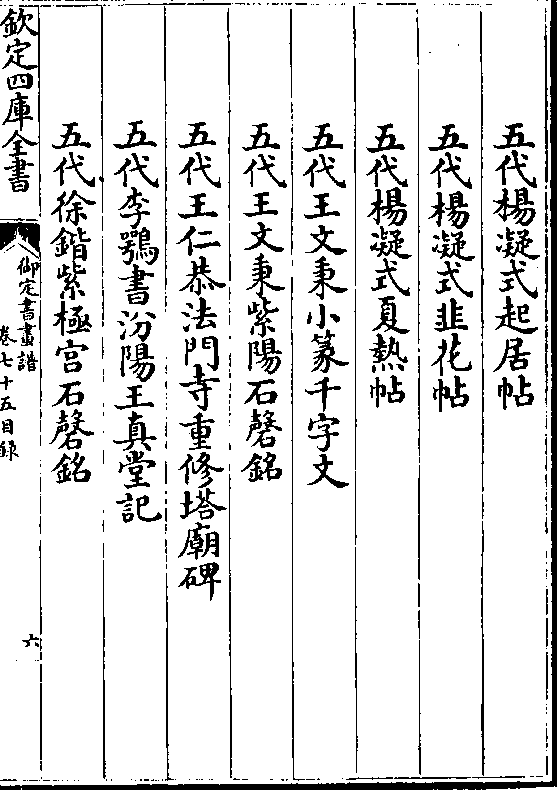 五代楊凝式起居帖
五代楊凝式韭花帖
五代楊凝式夏熱帖
五代王文秉小篆千字文
五代王文秉紫陽石磬銘
五代王仁恭法門寺重修塔廟碑
五代李鶚書汾陽王真堂記
五代徐鍇紫極宮石磬銘
欽定四庫全書
御定書畫譜
卷七十五目錄
六